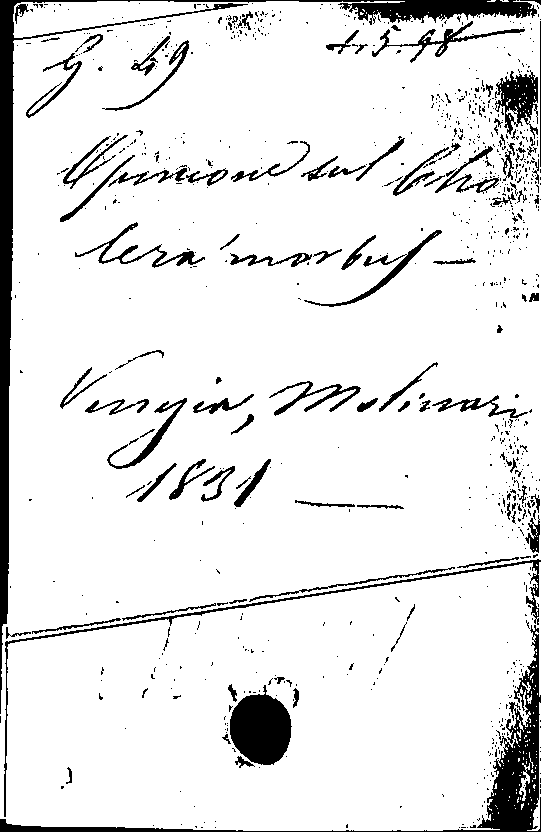 G. 49 4.5.98
Opinione sul Cho
lera morbus —
Venezia, Molinari
1831 —